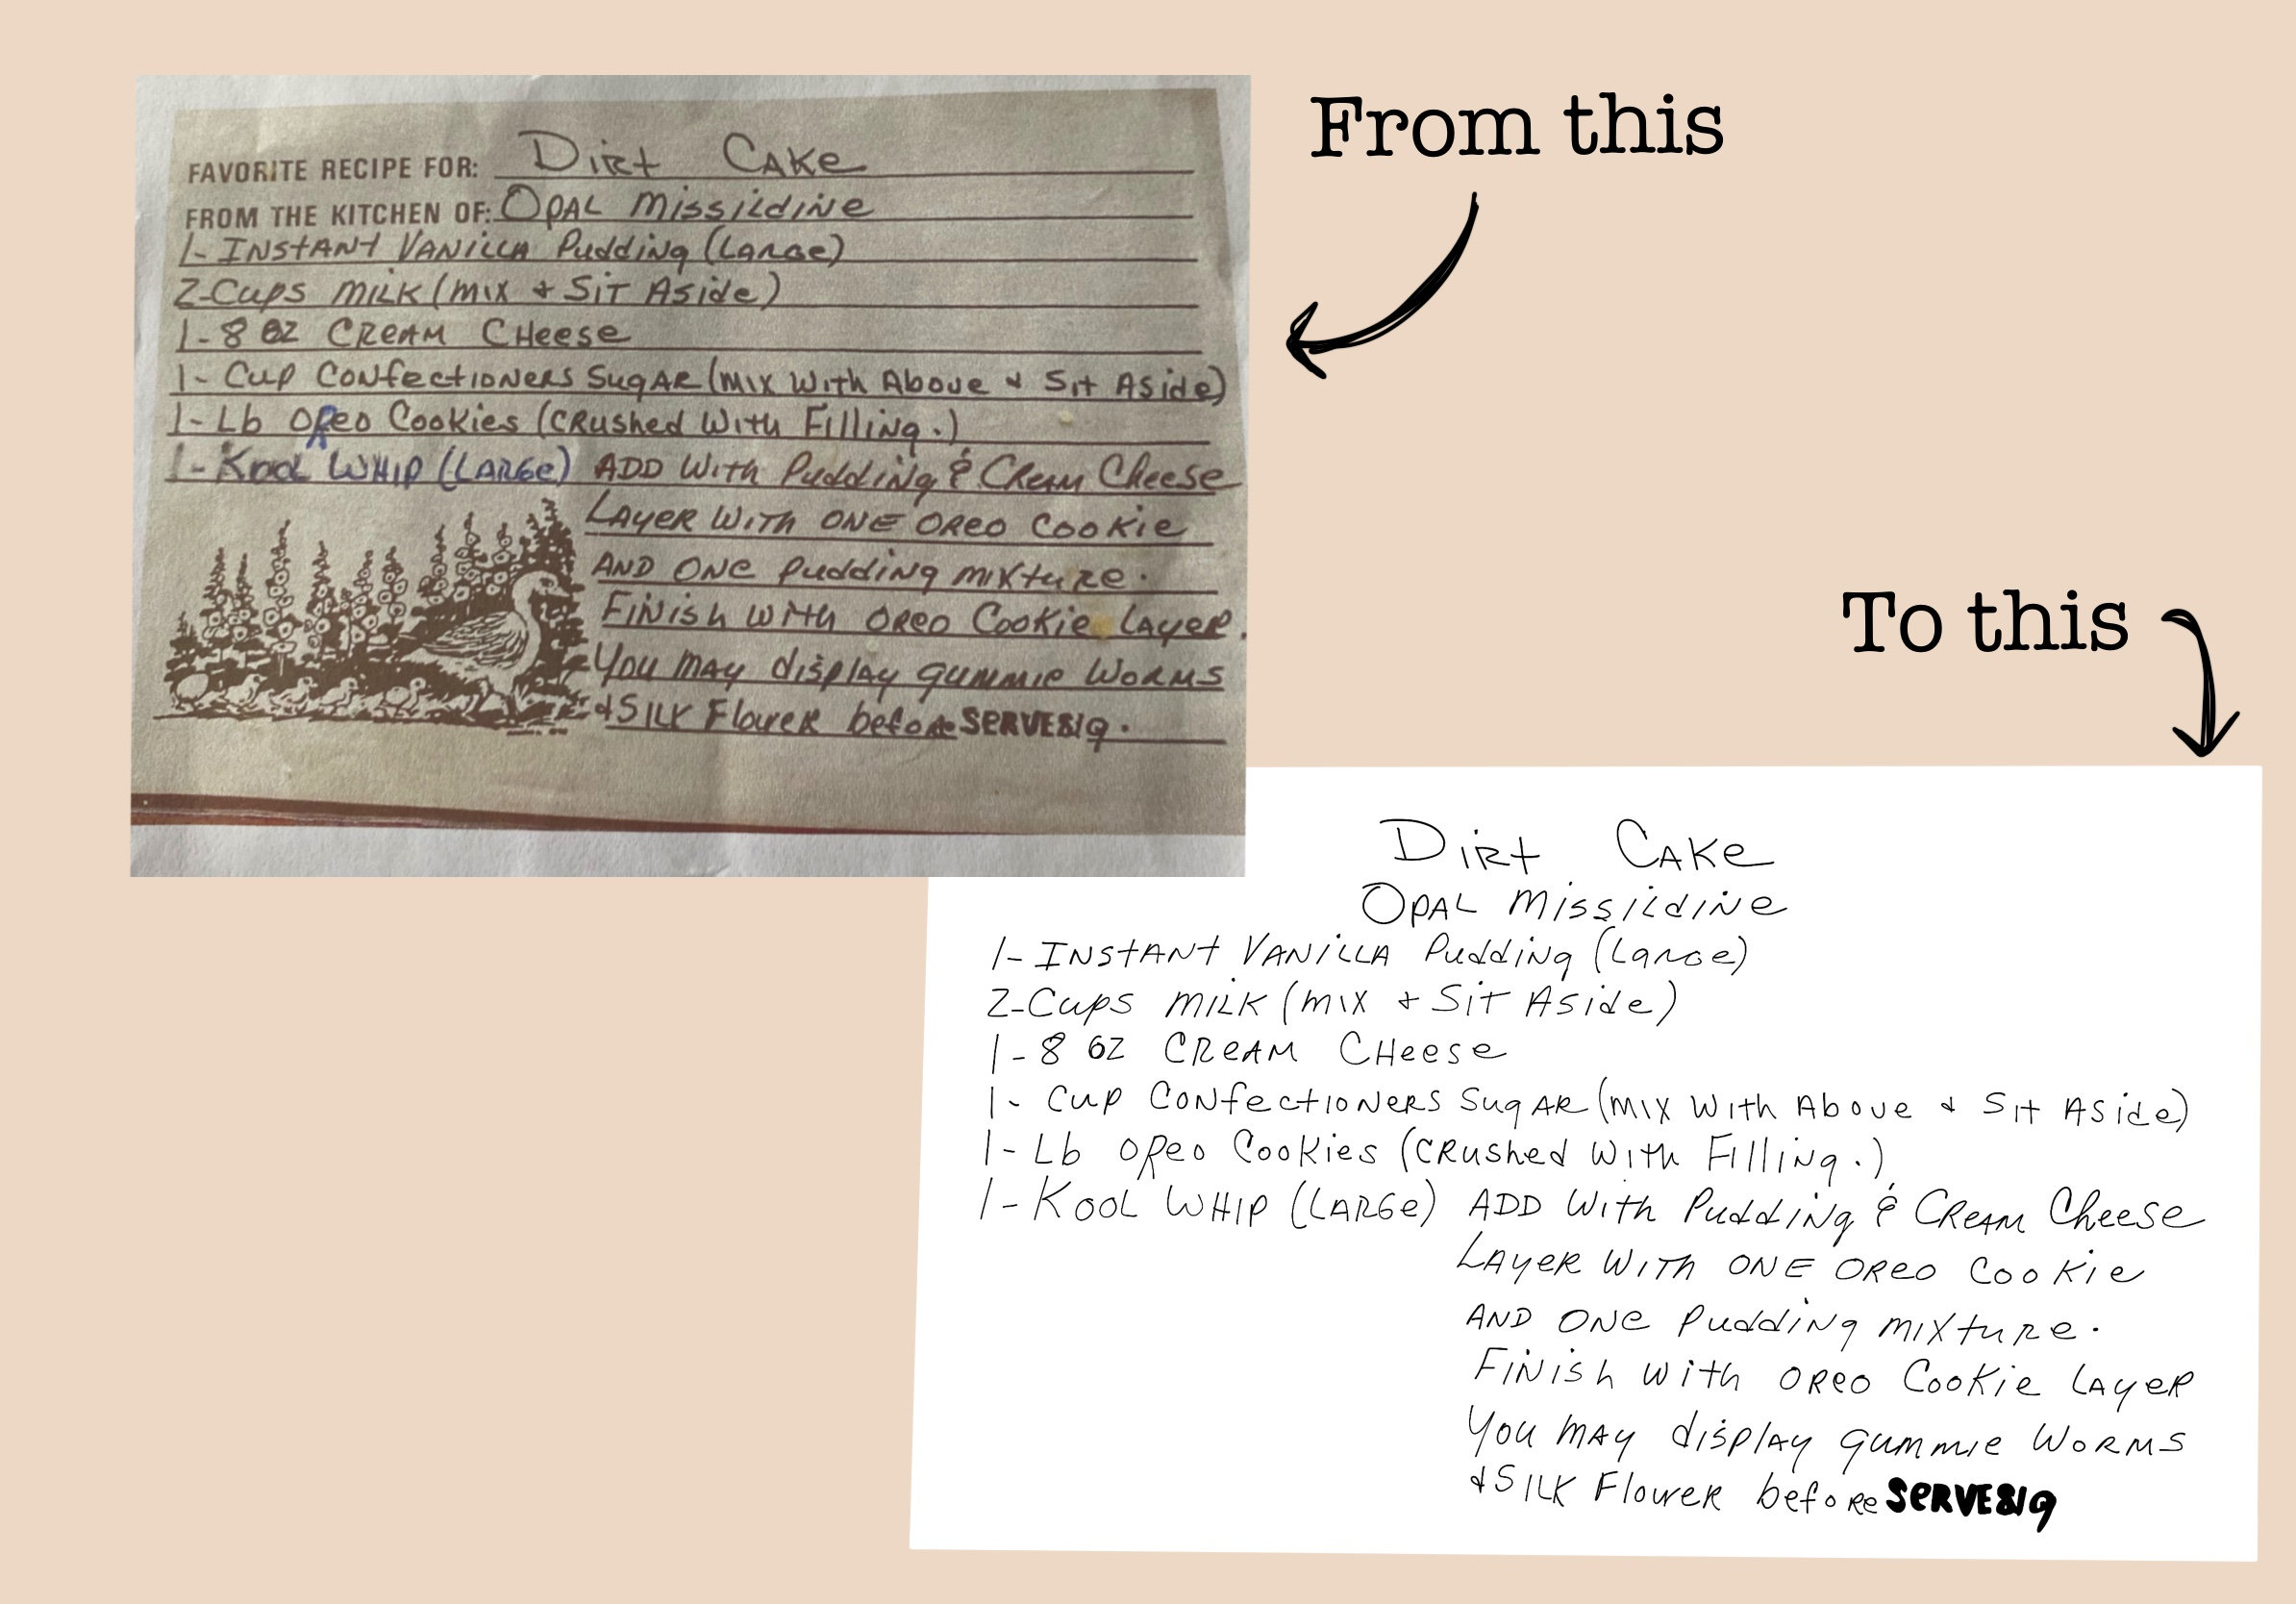 From this
FAVORITE RECIPE FOR: Dirt Cake
FROM THE KITCHEN OF: Opal Missildine
1- Instant Vanilla Pudding (Large)
2-Cups Milk (mix + Sit Aside)
1-8 oz Cream Cheese
1- Cup Confectioners Sugar (mix With Above + Sit Aside)
1-Lb Oreo Cookies (Crushed With Filling.)
1-Kool Whip (Large) Add With Pudding & Cream Cheese
Layer With One Oreo Cookie
And One Pudding mixture.
Finish With Oreo Cookie Layer.
You may display gummie Worms
+ Silk Flower before SERVEING.
To this
Dirt Cake
Opal Missildine
1- Instant Vanilla Pudding (Large)
2-Cups Milk (mix + Sit Aside)
1-8 oz Cream Cheese
1- Cup Confectioners Sugar (mix With Above + Sit Aside)
1-Lb Oreo Cookies (Crushed With Filling.)
1-Kool Whip (Large) Add With Pudding & Cream Cheese
Layer With One Oreo Cookie
And One Pudding mixture.
Finish With Oreo Cookie Layer
You may display gummie Worms
+ Silk Flower before SERVEING